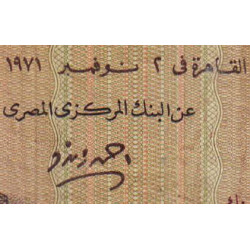 القاهرة فى ٢ نوفمبر ١٩٧١
عن البنك المركزى المصرى